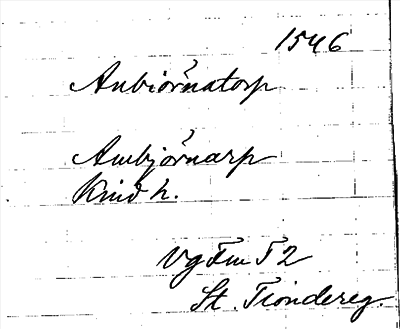 1546
Anbiörnatorp
Ambjörnarp
Kind h.
Vg Fm T 2
St. Tiondereg.